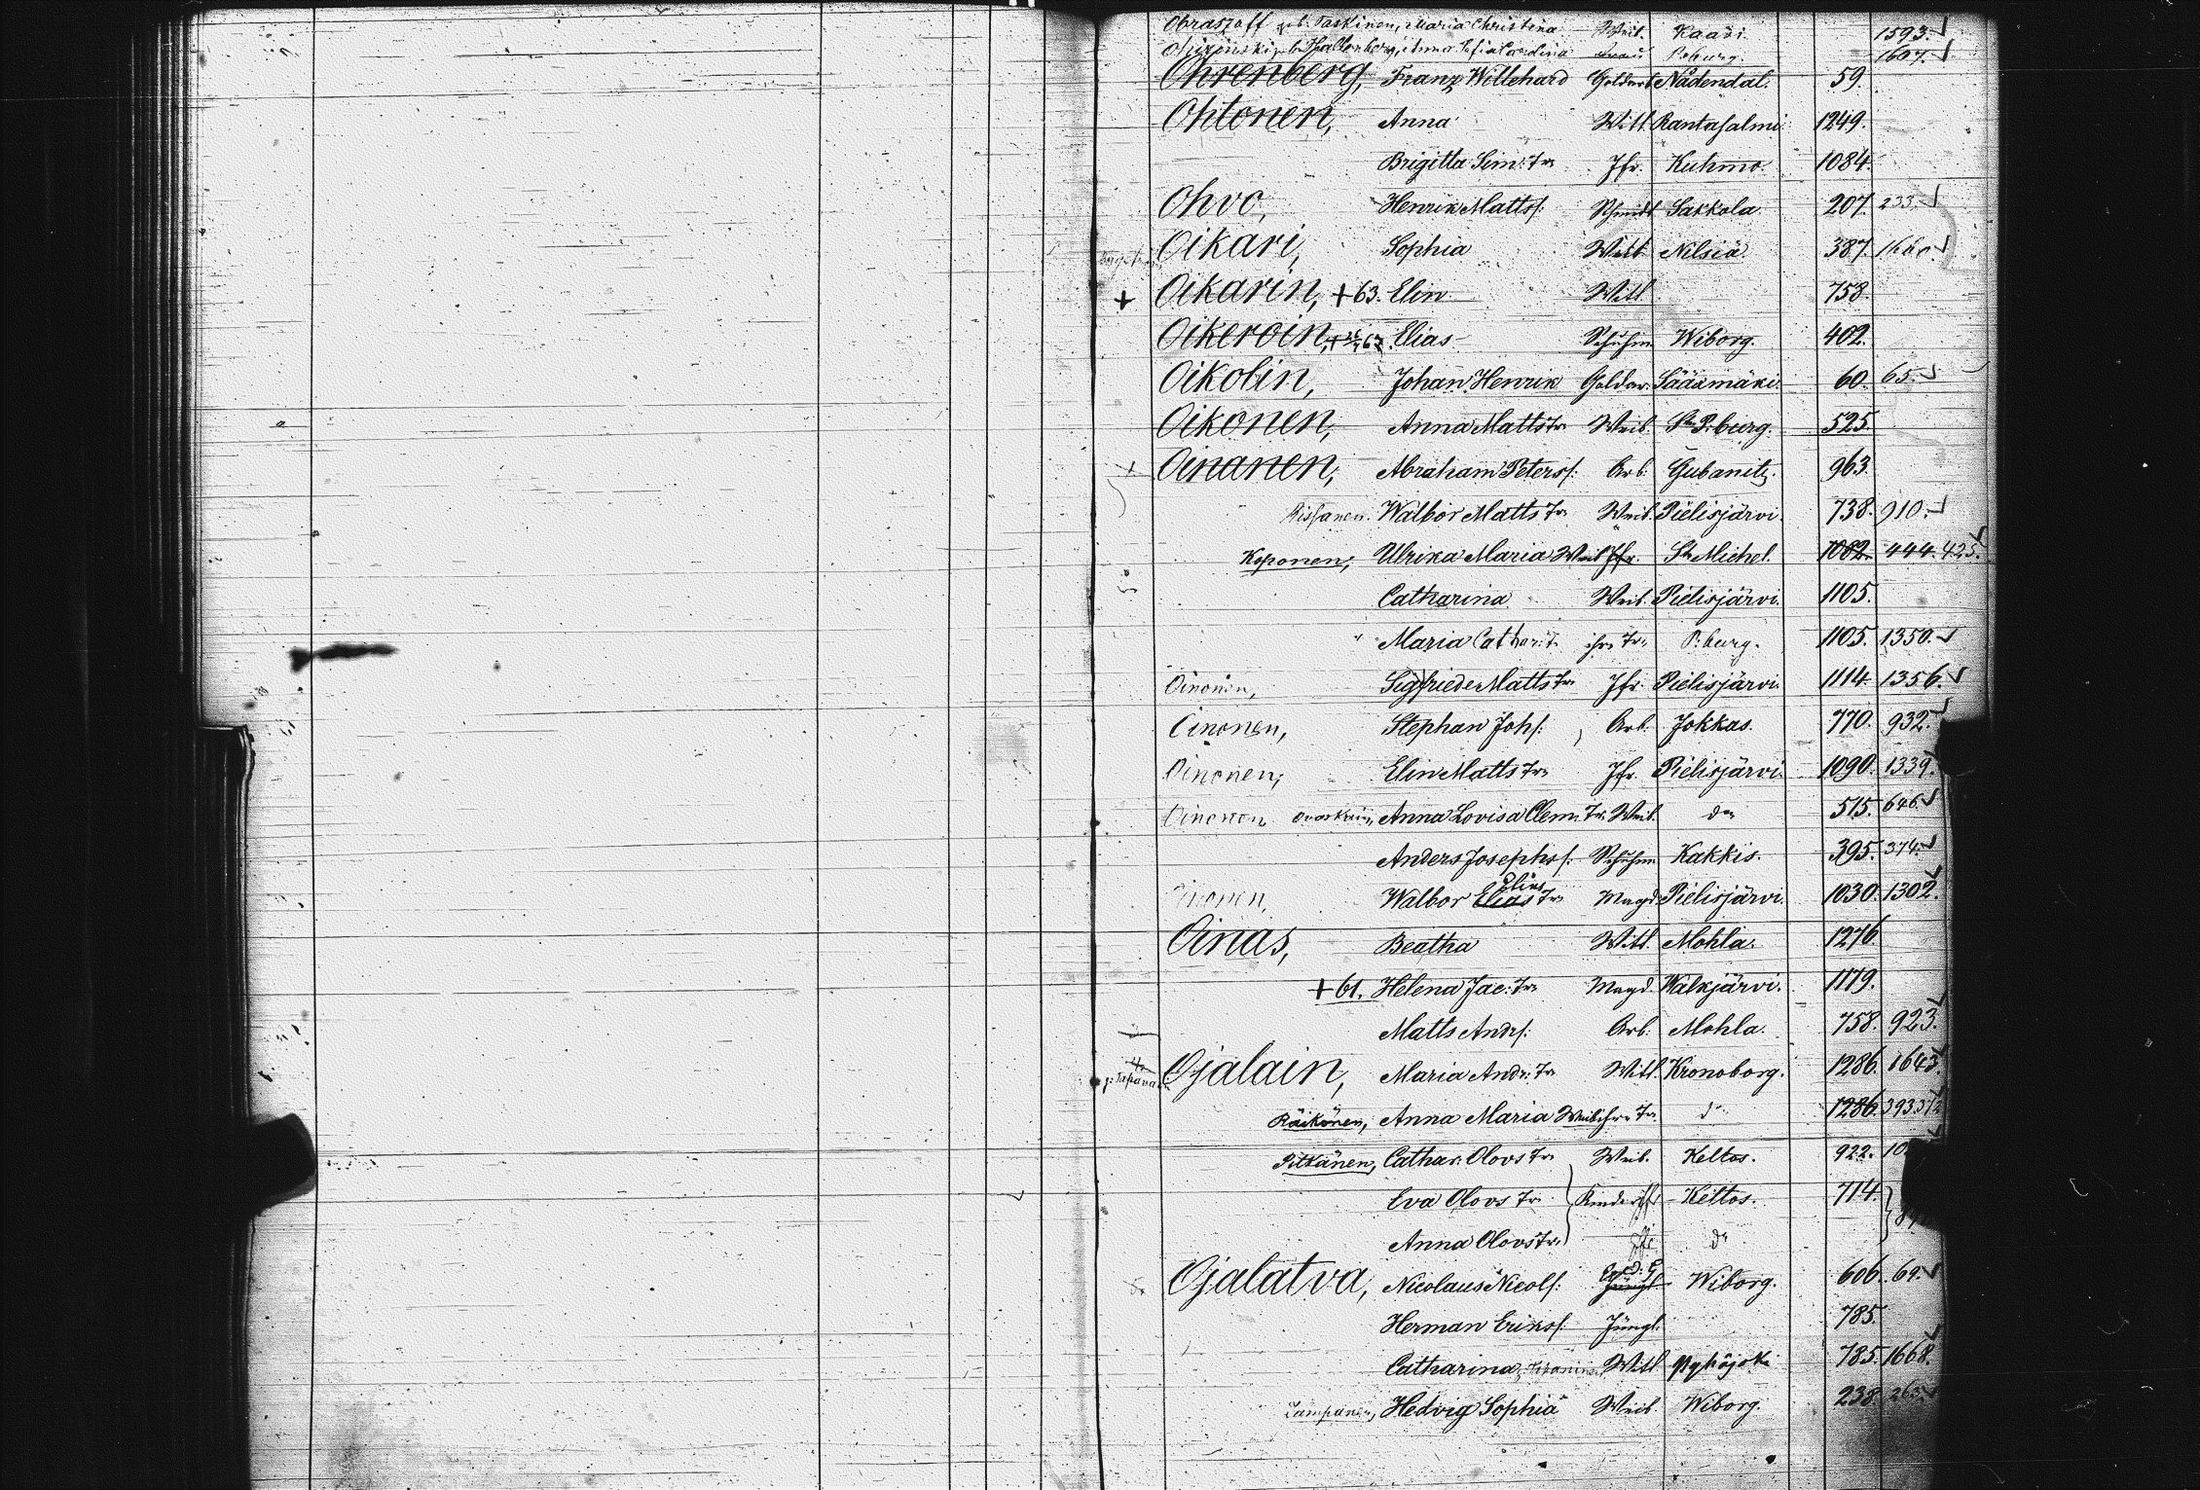 Obraszoff geb. Paskinen, Maria Christina Weib. Kaadi 1593.
Anna Sofia Carolina P:burg. 1607.
Ohrenberg, Franz Willehard Goldarb Nådendal. 59.
Ohtonen, Anna Witt Rantasalmi 1249.
Brigitta Sim: Tr. Jfr. Kuhmo. 1084.
Ohvo, Henrik Mattss. Schmidt Sakkola 207. 233.
Oikari, Sophia Witt. Nilsiä 387. 1660.
+ Oikarin, +63. Elin Witt 758.
Oikeroin, Elias Schuhm. Wiborg. 402.
Oikolin, Johan Henrik Goldar. Sääxmäki. 60. 65.
Oikonen, Anna Matts Tr. Weib. St P:burg. 525.
Oinanen, Abraham Peterss: Arb: Gubanitz. 963.
Rissanen. Walbor Matts Tr. Weib. Pielisjärvi. 738. 910.
Koponen, Ulrika Maria Weib Jfr. St Michel. 1082. 444. 425.
Catharina Weib. Pielisjärvi. 1105.
" Maria Cathar: T. ihre Tr. P:burg. 1105. 1350.
Oinonen, Sigfriede Matts Tr. Jfr. Pielisjärvi. 1114. 1356.
Oinonen, Stephan Johs: Arb. Jokkas. 770. 932.
Oinonen, Elin Matts Tr. Jfr. Pielisjärvi. 1090. 1339.
Oinonen Anna Lovisa Clem: Tr. Weib. do 515. 646.
Anders Josephss: Schuhm. Kakkis. 395. 374.
Oinonen, Walbor Elias Elias Tr. Magd. Pielisjärvi. 1030. 1302.
Oinas, Beatha Witt. Mohla. 1276.
+61. Helena Jac: Tr. Magd. Walkjärvi. 1179.
Matts Ands: Arb: Mohla. 758. 923.
Ojalain, Maria Andr: Tr. Witt. Kronoborg. 1286. 1643.
Räikönen, Anna Maria Weib ihre Tr. do 1286.
Pitkänen, Cathar: Olovs Tr. Weib. Keltos. 922.
Eva Olovs Tr. Kinder Keltos. 714.
Anna Olovs Tr. do
Ojalatva, Nicolaus Nicols: Jüngl. Wiborg. 606. 69.
Herman Erikss: Jüngl. 785.
Catharina Witt Pyhäjoki 785. 1668.
Lampanen, Hedvig Sophia Weib. Wiborg. 238. 263.